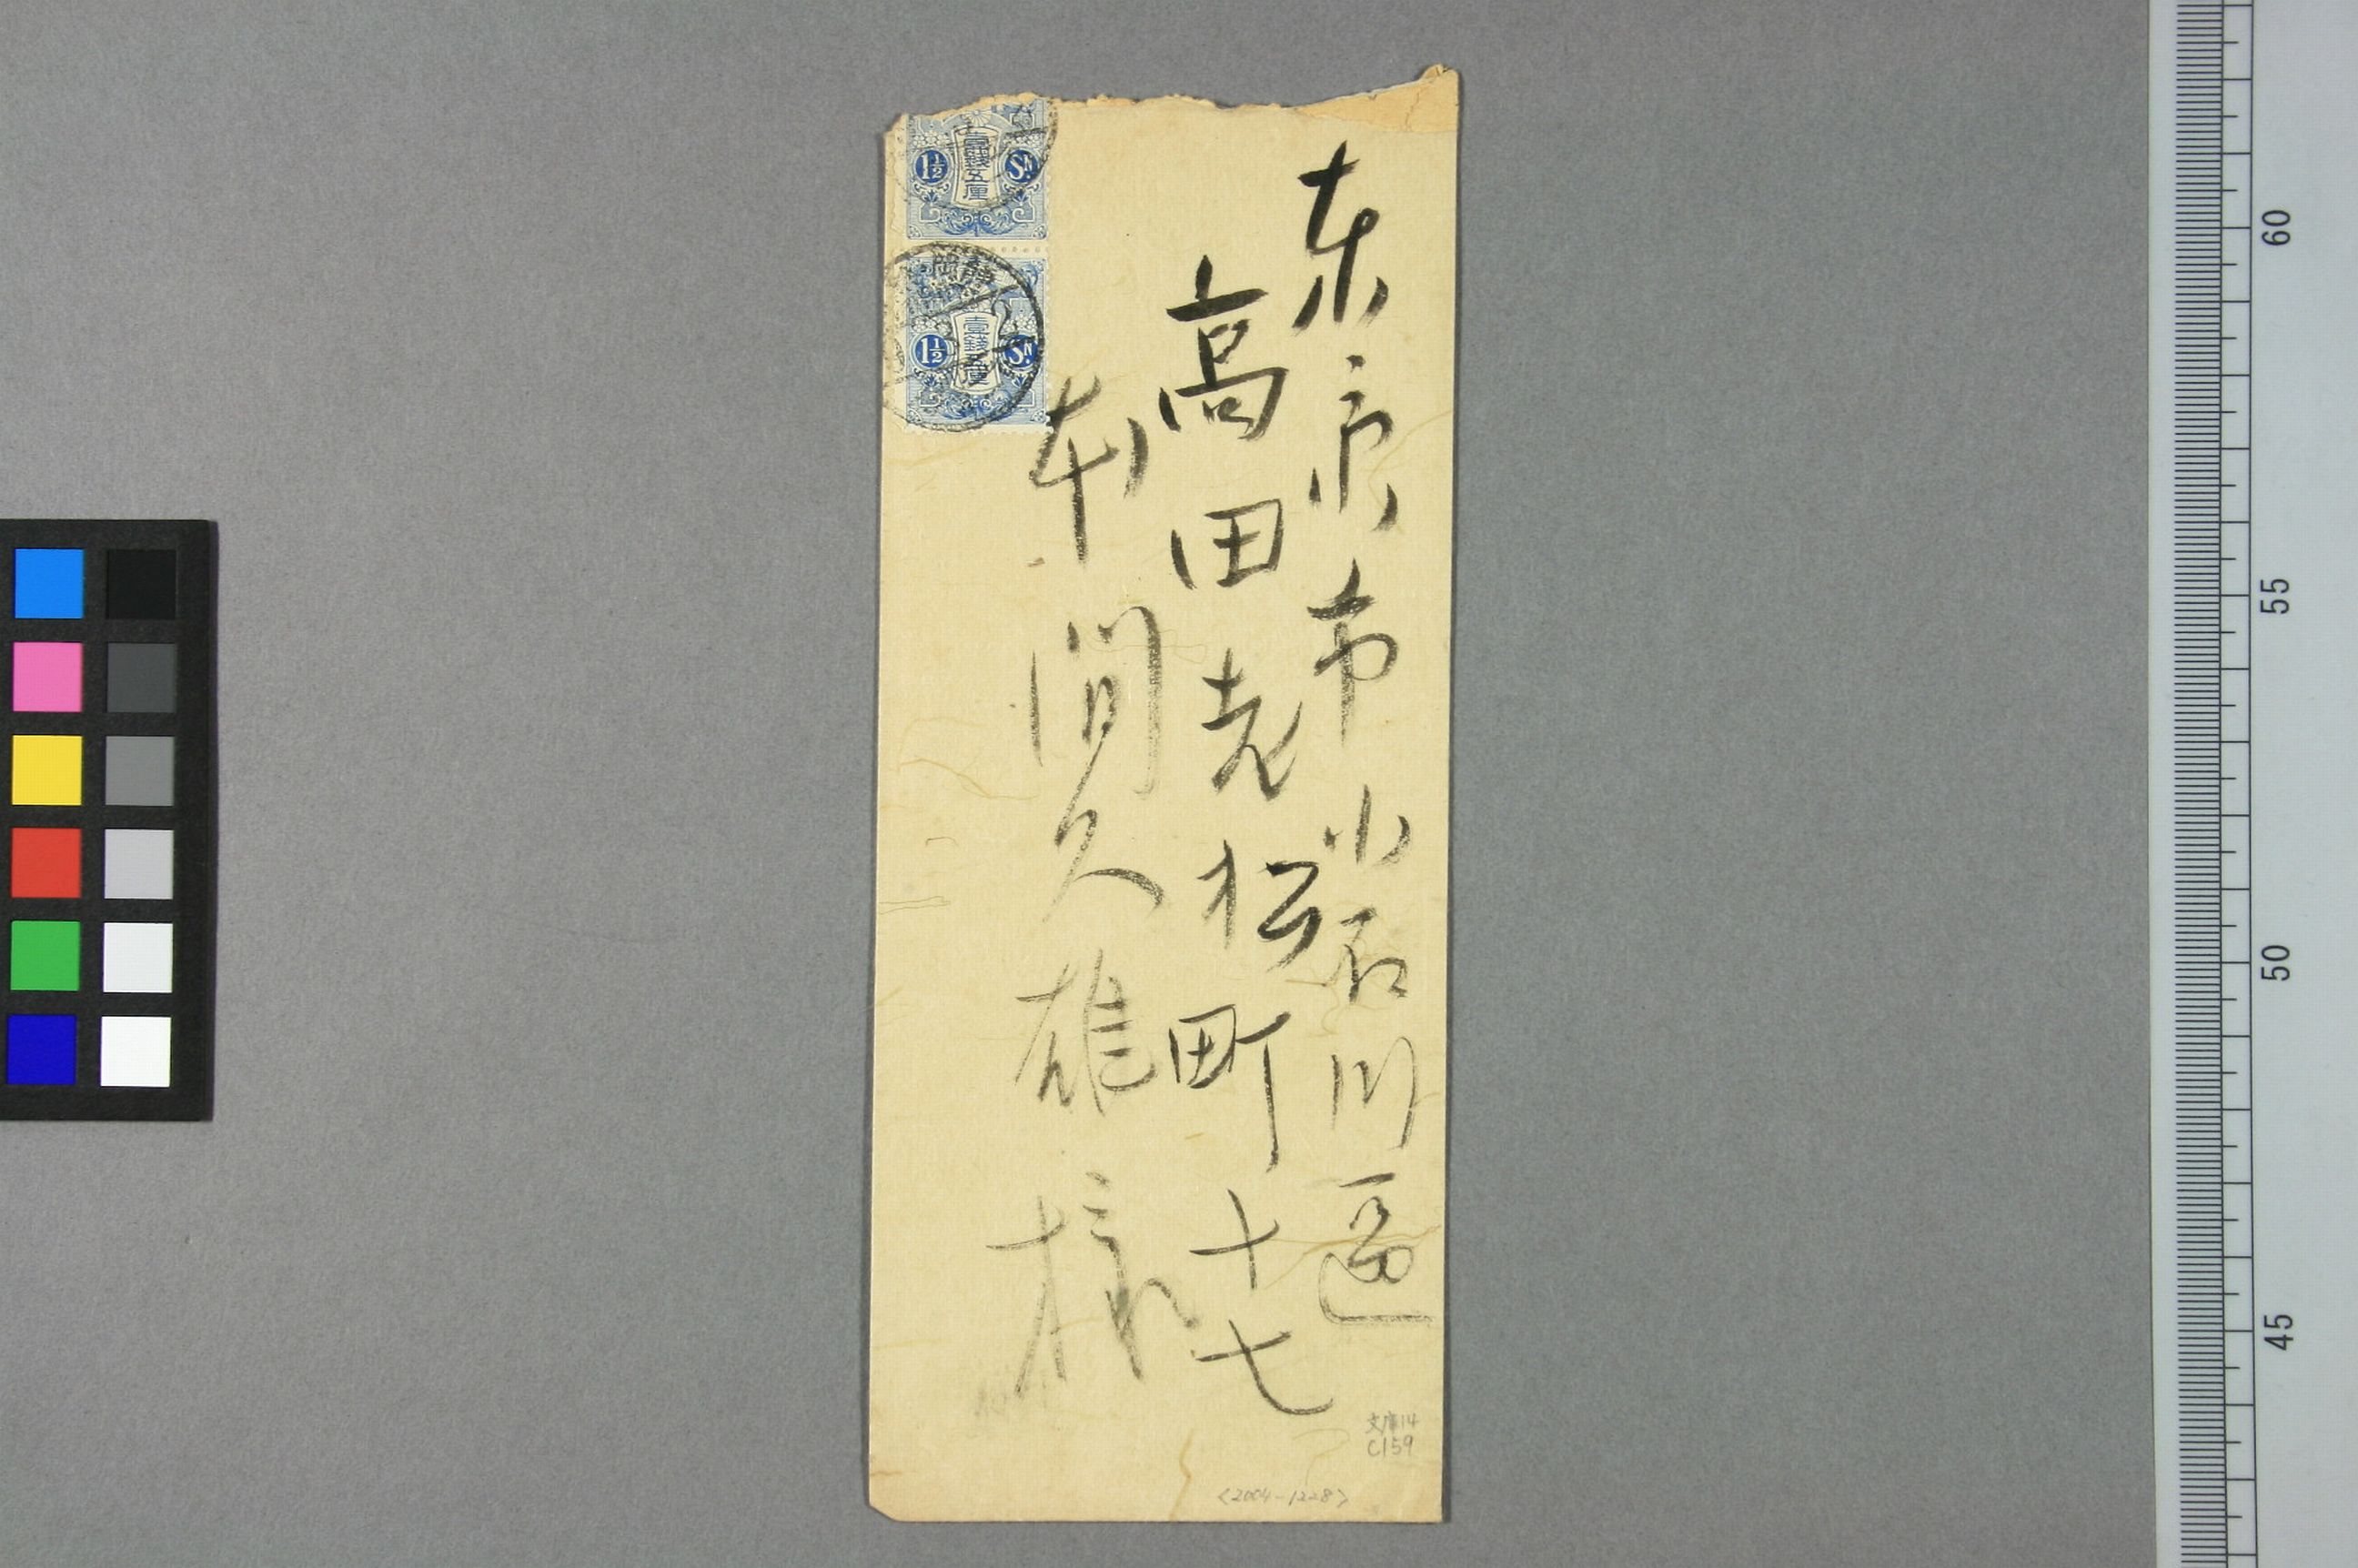 東京市小石川區
高田老松町十七
本間久雄様
1½ 壹錢五厘 Sn
1½ 壹錢五厘 Sn
文庫14
C159
<2004-1228>
60
55
50
45